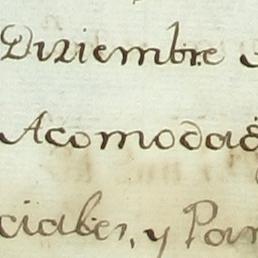 Diziembre
Acomodad
ciales, y Par